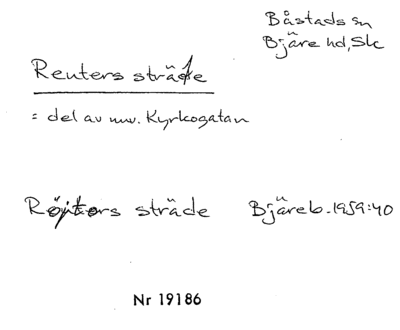 Båstads sn
Bjäre hd, Sk
Reuters sträde
= del av nuv. Kyrkogatan
Röjtors sträde Bjäreb. 1959:40
Nr 19186